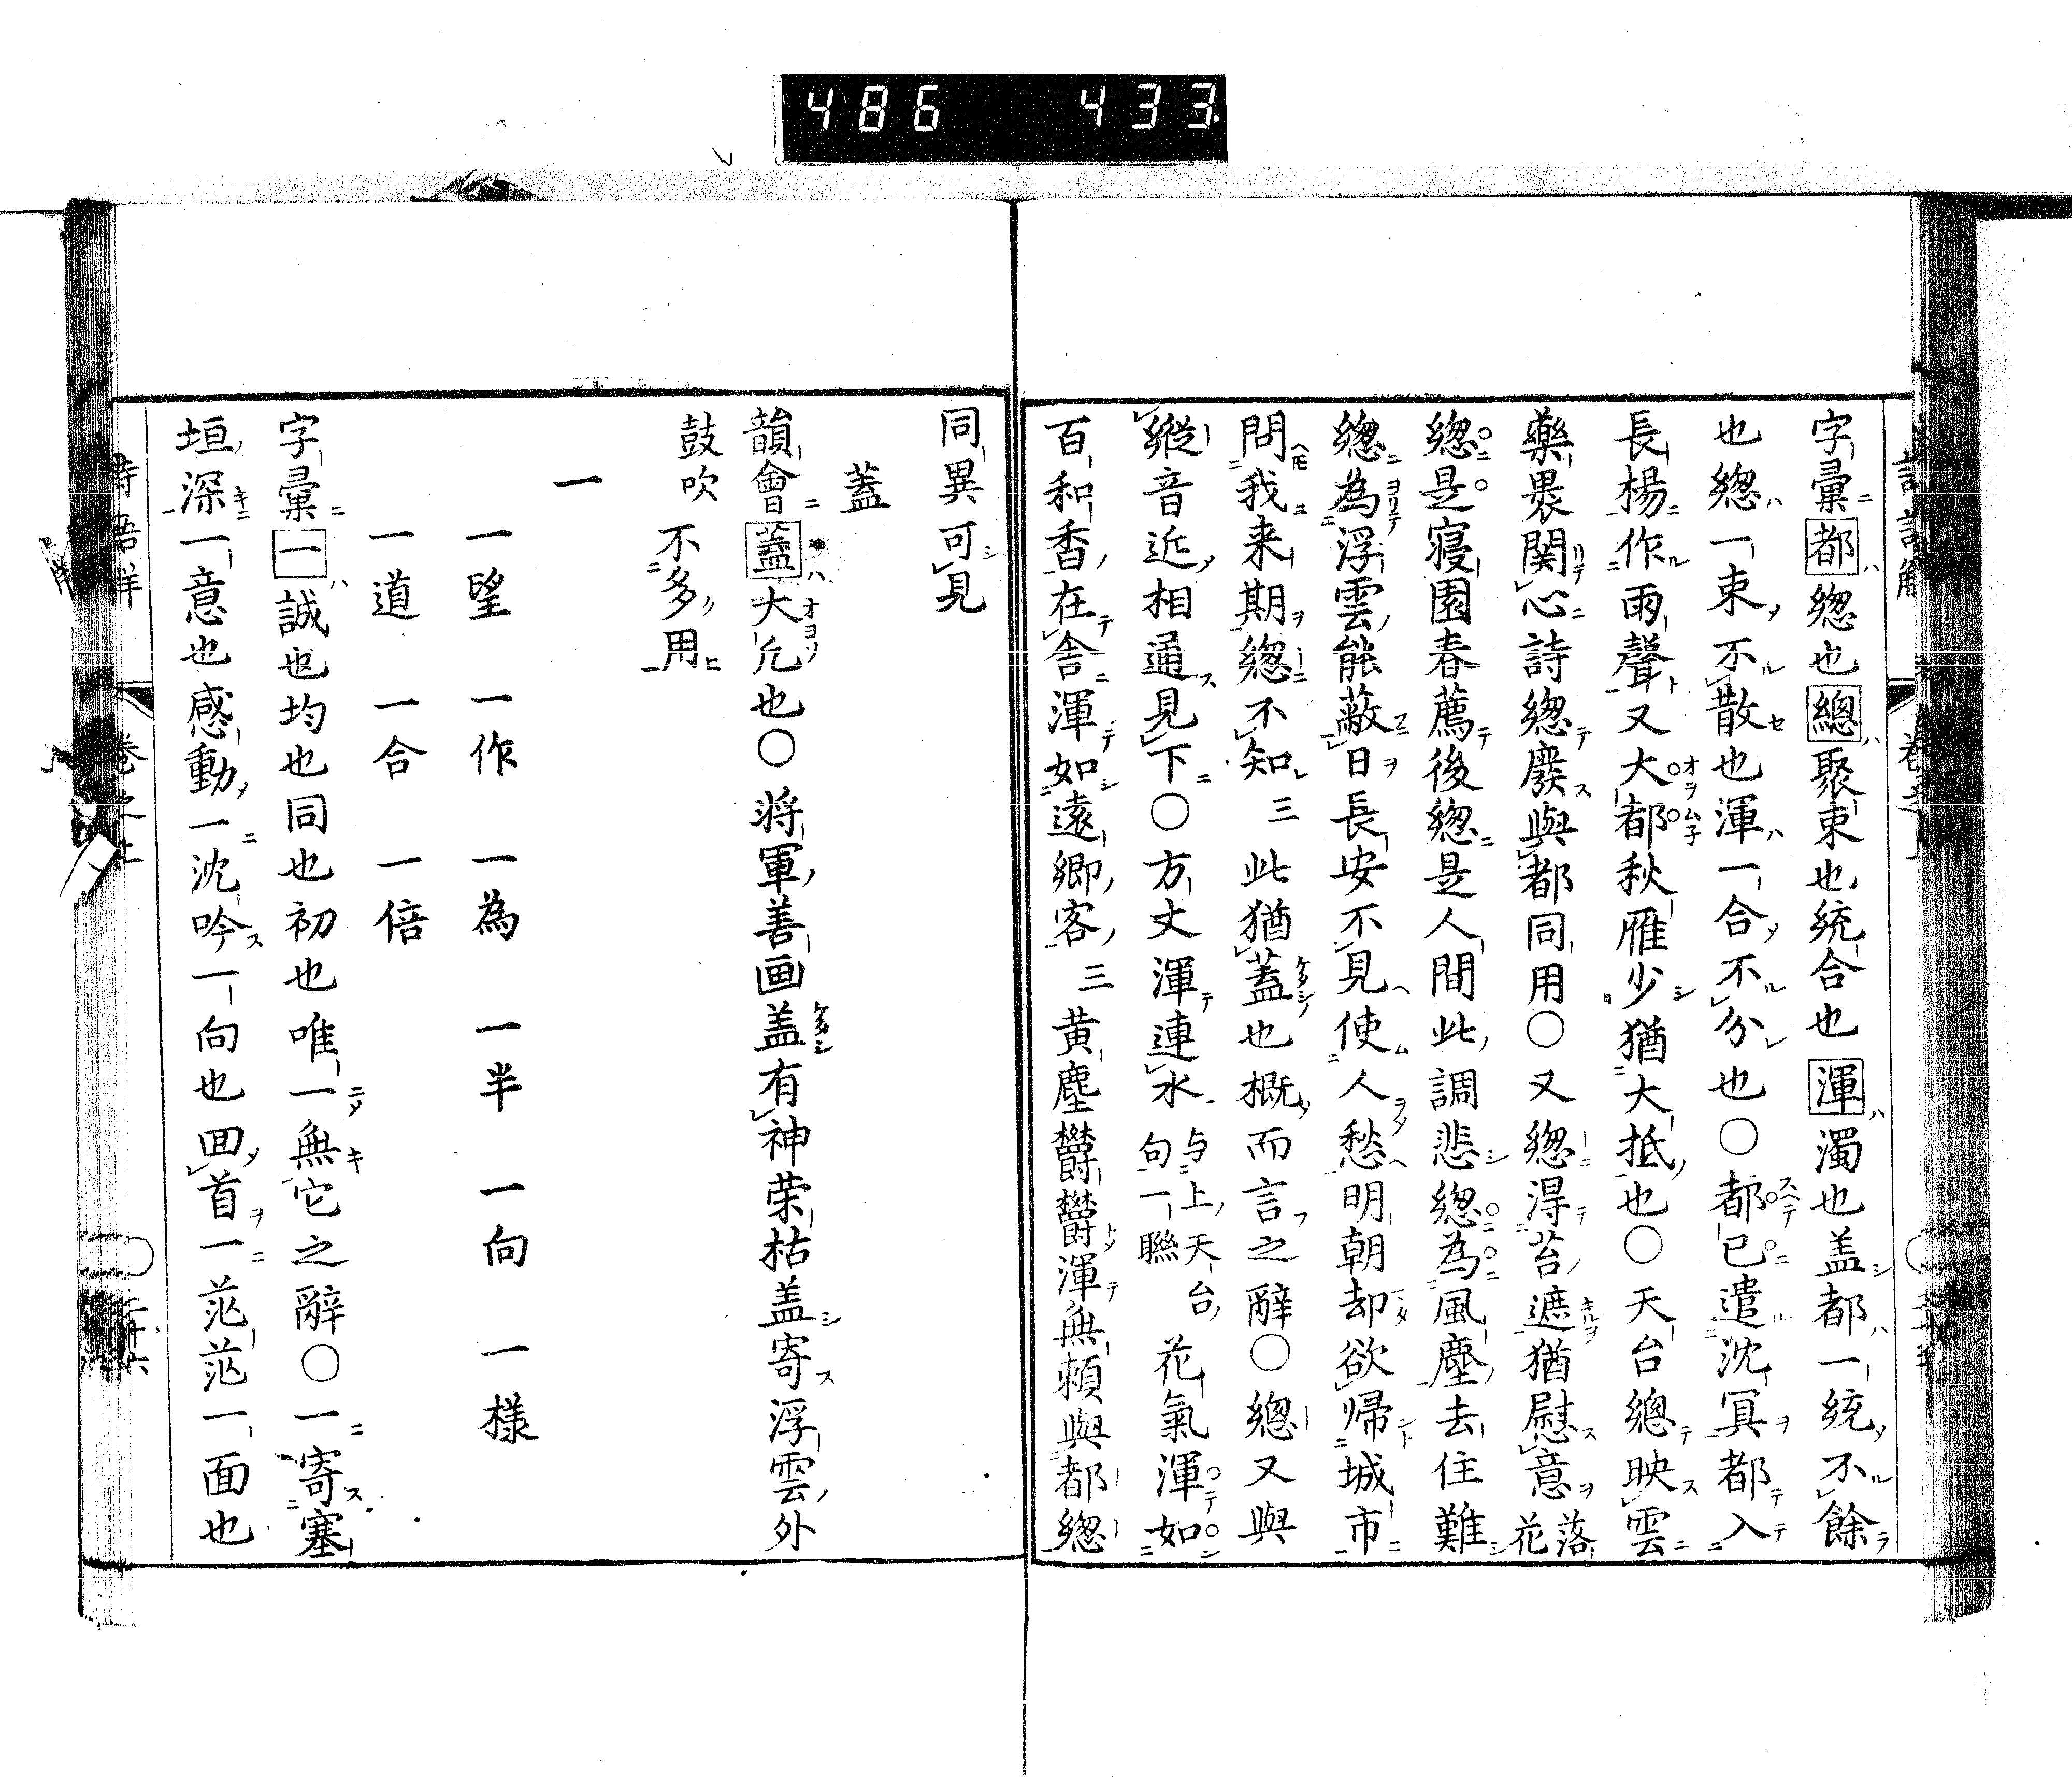 486 433
字彙都總也總聚束也統合也渾濁也盖都一統不餘
也總一束不散也渾一合不分也〇都已遣沈冥都入
長楊作雨聲又大都秋雁少猶大抵也〇天台總映雲
藥畏関心詩總廢與都同用〇又總得苔遮猶慰意花落
總是寢園春薦後總是人間此調悲總為風塵去住難
總為浮雲能蔽日長安不見使人愁明朝却欲歸城市
問我来期總不知 三 此猶蓋也概而言之辭〇總又與
縱音近相通見下〇方丈渾連水 与上天台句一聯 花氣渾如
百和香在舎渾如遠郷客 三 黄塵欝欝渾無頼與都總
同異可見
蓋
韻會蓋大凢也〇将軍善画盖有神荣枯盖寄浮雲外
鼓吹 不多用
一
一望 一作 一為 一半 一向 一様
一道 一合 一倍
字彙一誠也均也同也初也唯一無它之辭〇一寄塞
垣深一意也感動一沈吟一向也囬首一茫茫一面也